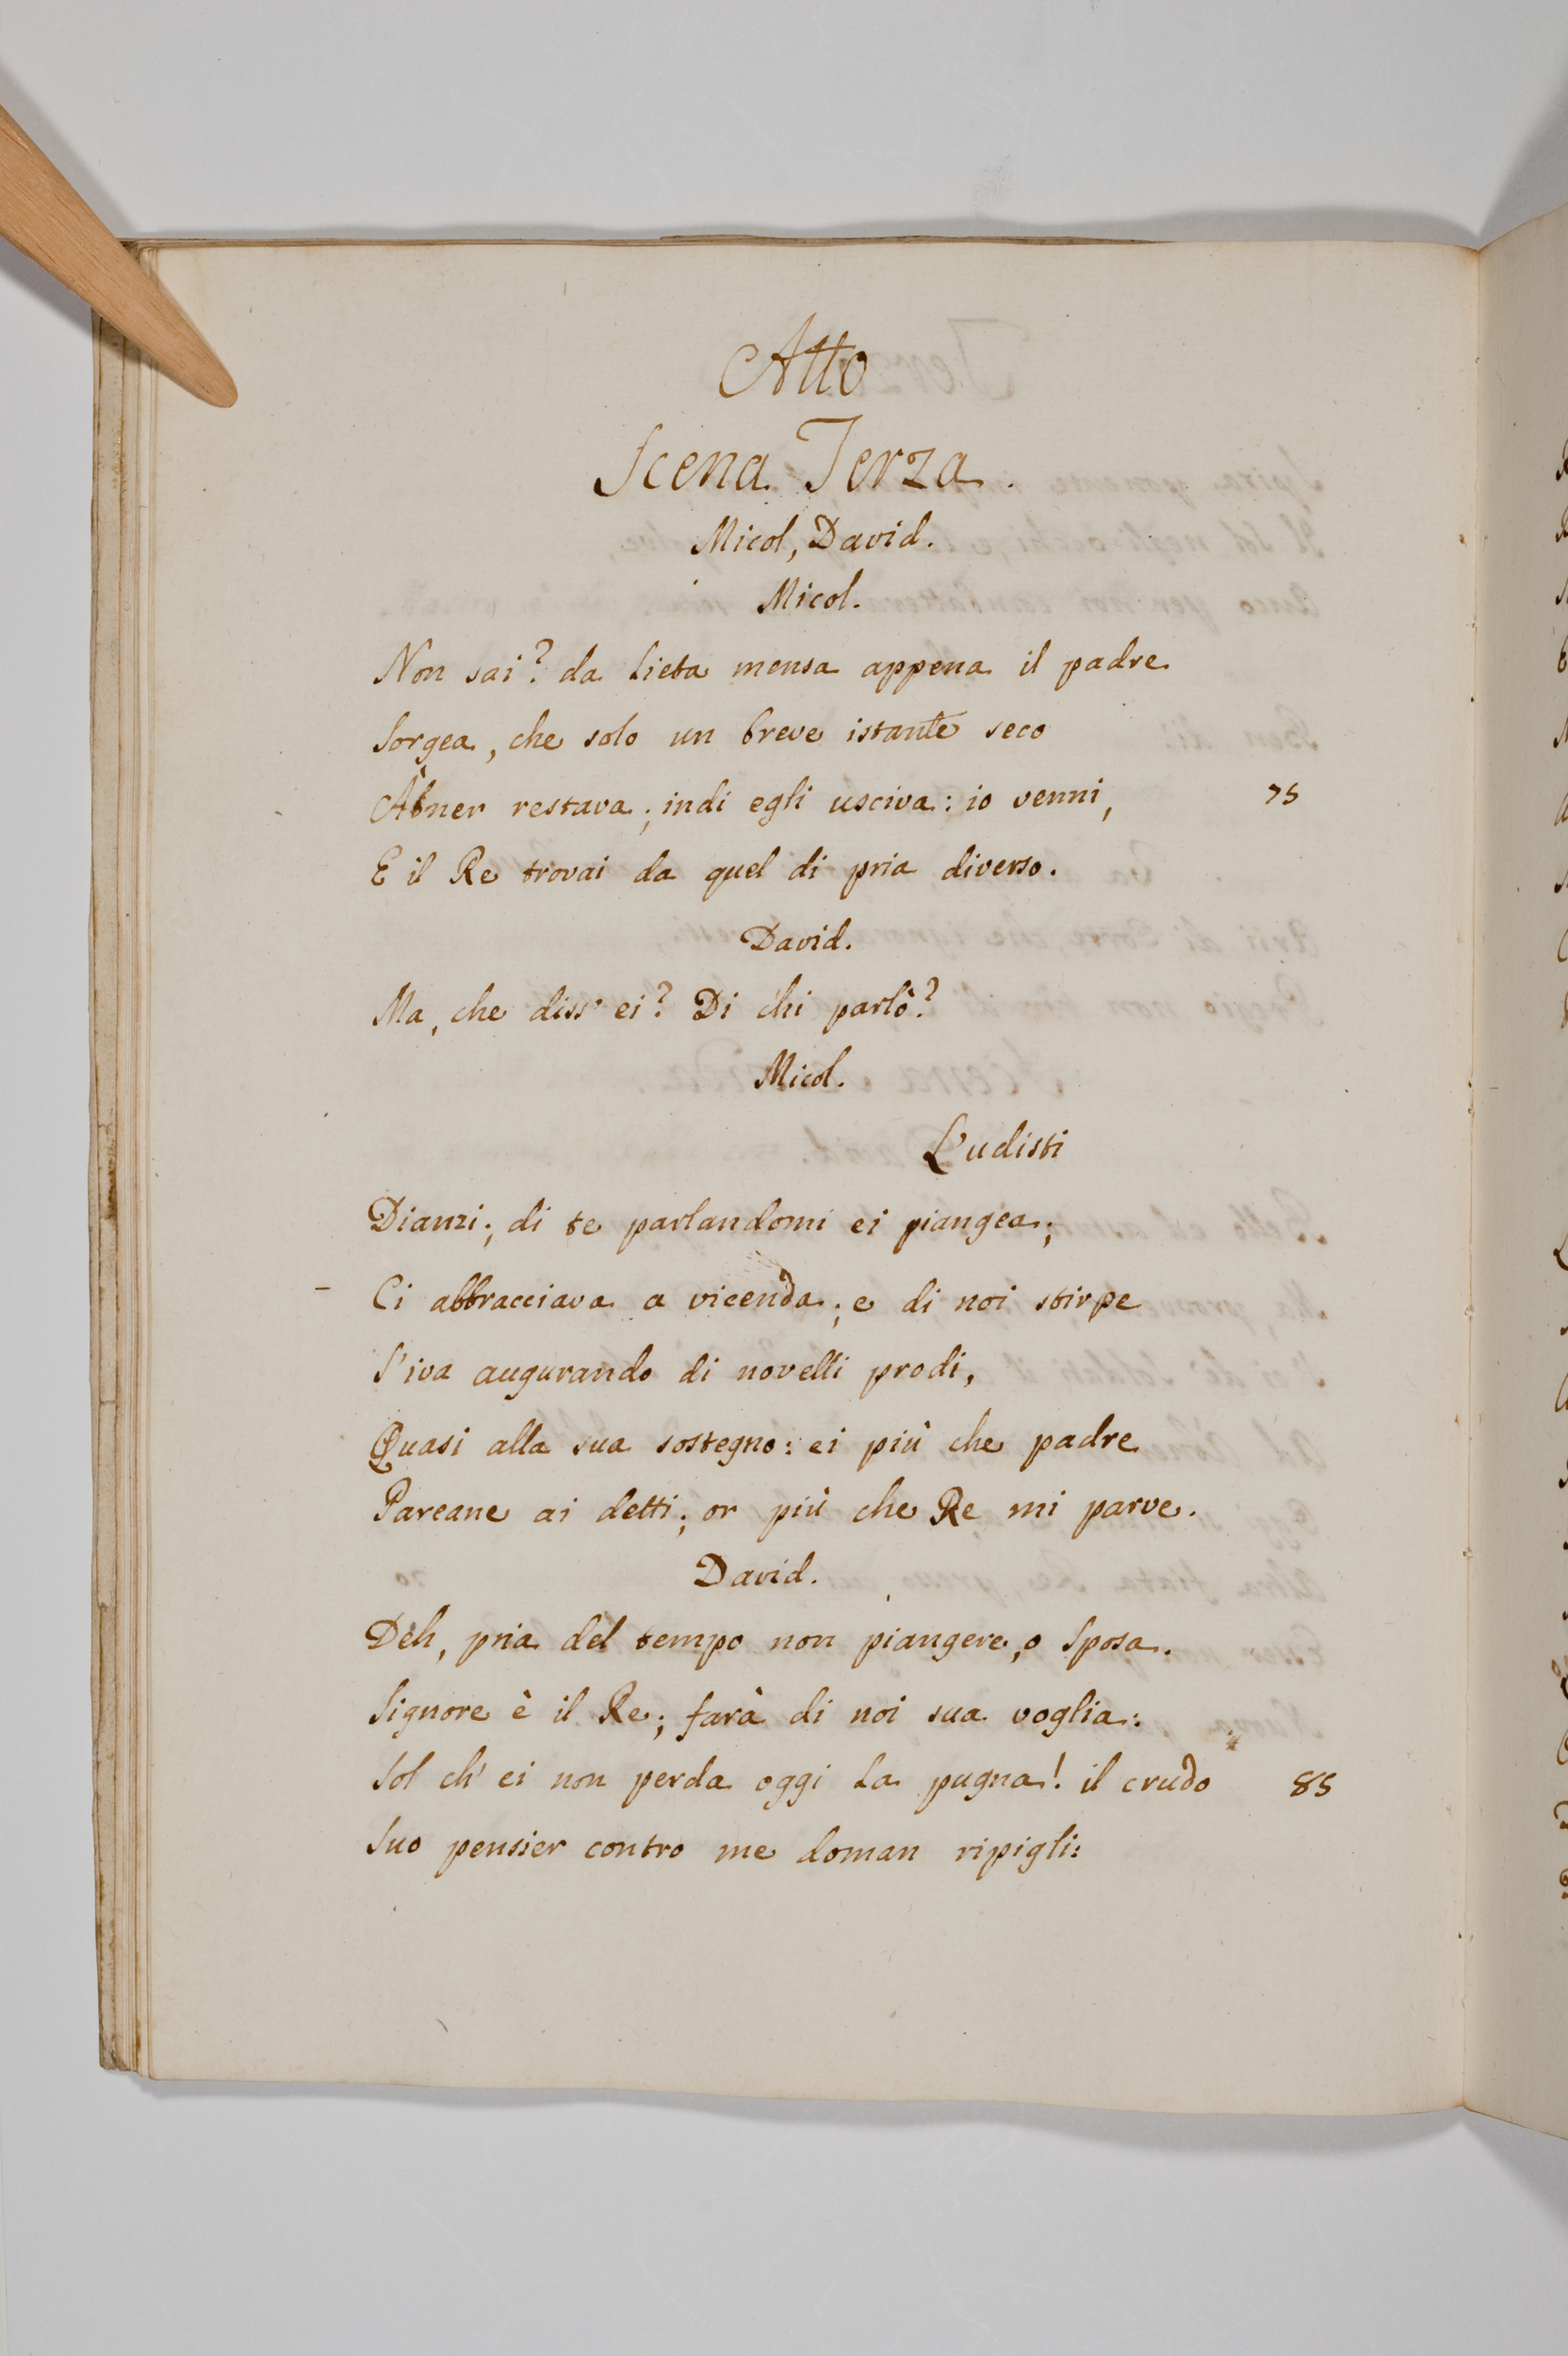 Atto
Scena Terza.
Micol, David.
Micol.
Non sai? da lieta mensa appena il padre
Sorgea, che solo un breve istante seco
Àbner restava; indi egli usciva: io venni, 75
E il Re trovai da quel di pria diverso.
David.
Ma, che diss' ei? Di chi parlò?
Micol.
L'udisti
Dianzi; di te parlandomi ei piangea;
Ci abbracciava a vicenda; e di noi stirpe
S'iva augurando di novelli prodi,
Quasi alla sua sostegno: ei più che padre
Pareane ai detti; or più che Re mi parve.
David.
Deh, pria del tempo non piangere, o Sposa.
Signore è il Re; farà di noi sua voglia:
Sol ch' ei non perda oggi la pugna! il crudo 85
Suo pensier contro me doman ripigli: